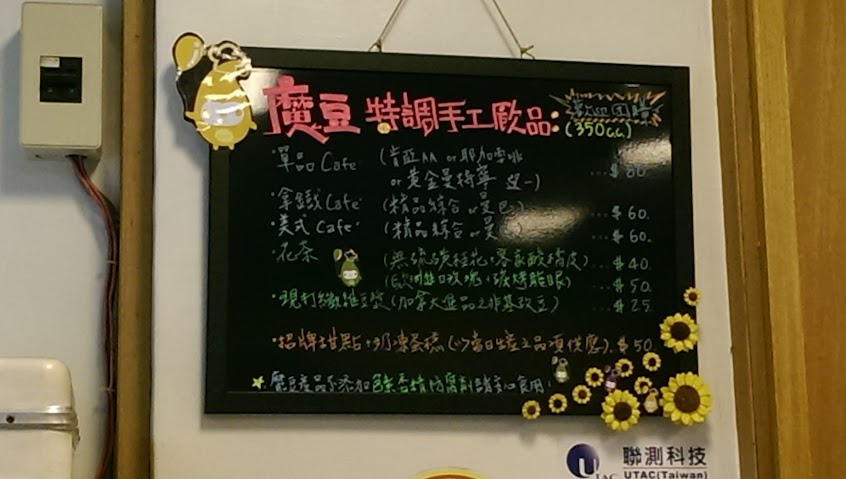 魔豆 特調手工飲品: 歡迎團購
(350c.c.)
·單品Cafe (肯亞AA or 耶加雪啡
or 黃金曼特寧 選一) ...$ 80.
·拿鐵Cafe (精品綜合 or 曼巴) ...$ 60.
·美式Cafe (精品綜合 or 曼巴) ...$ 60.
·花茶 (無硫磺桂花、客家酸桔皮) ...$ 40.
(歐洲進口玫瑰、碳烤龍眼) ...$ 50.
·現打纖維豆漿 (加拿大進口之非基改豆) ...$ 25.
·招牌甜點·奶凍蛋糕 (以當日生產之品項供應). $ 50.
魔豆產品不添加色素香精防腐劑請安心食用!
UTAC
聯測科技
UTAC(Taiwan)